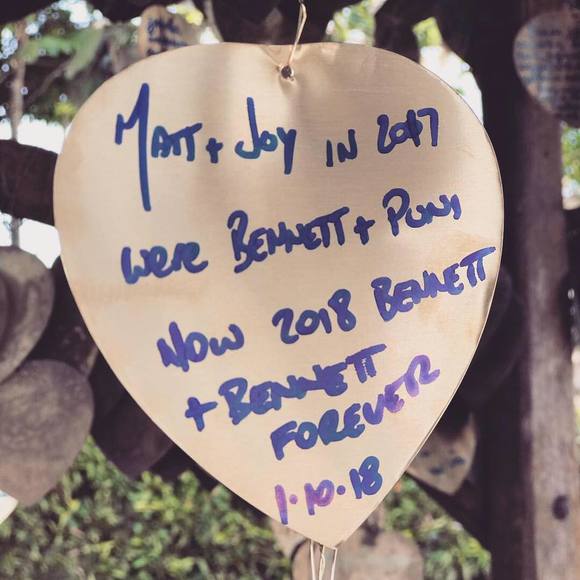 MATT + JOY IN 2017
were BENNETT + PUNI
NOW 2018 BENNETT
+ BENNETT
FOREVER
1.10.18